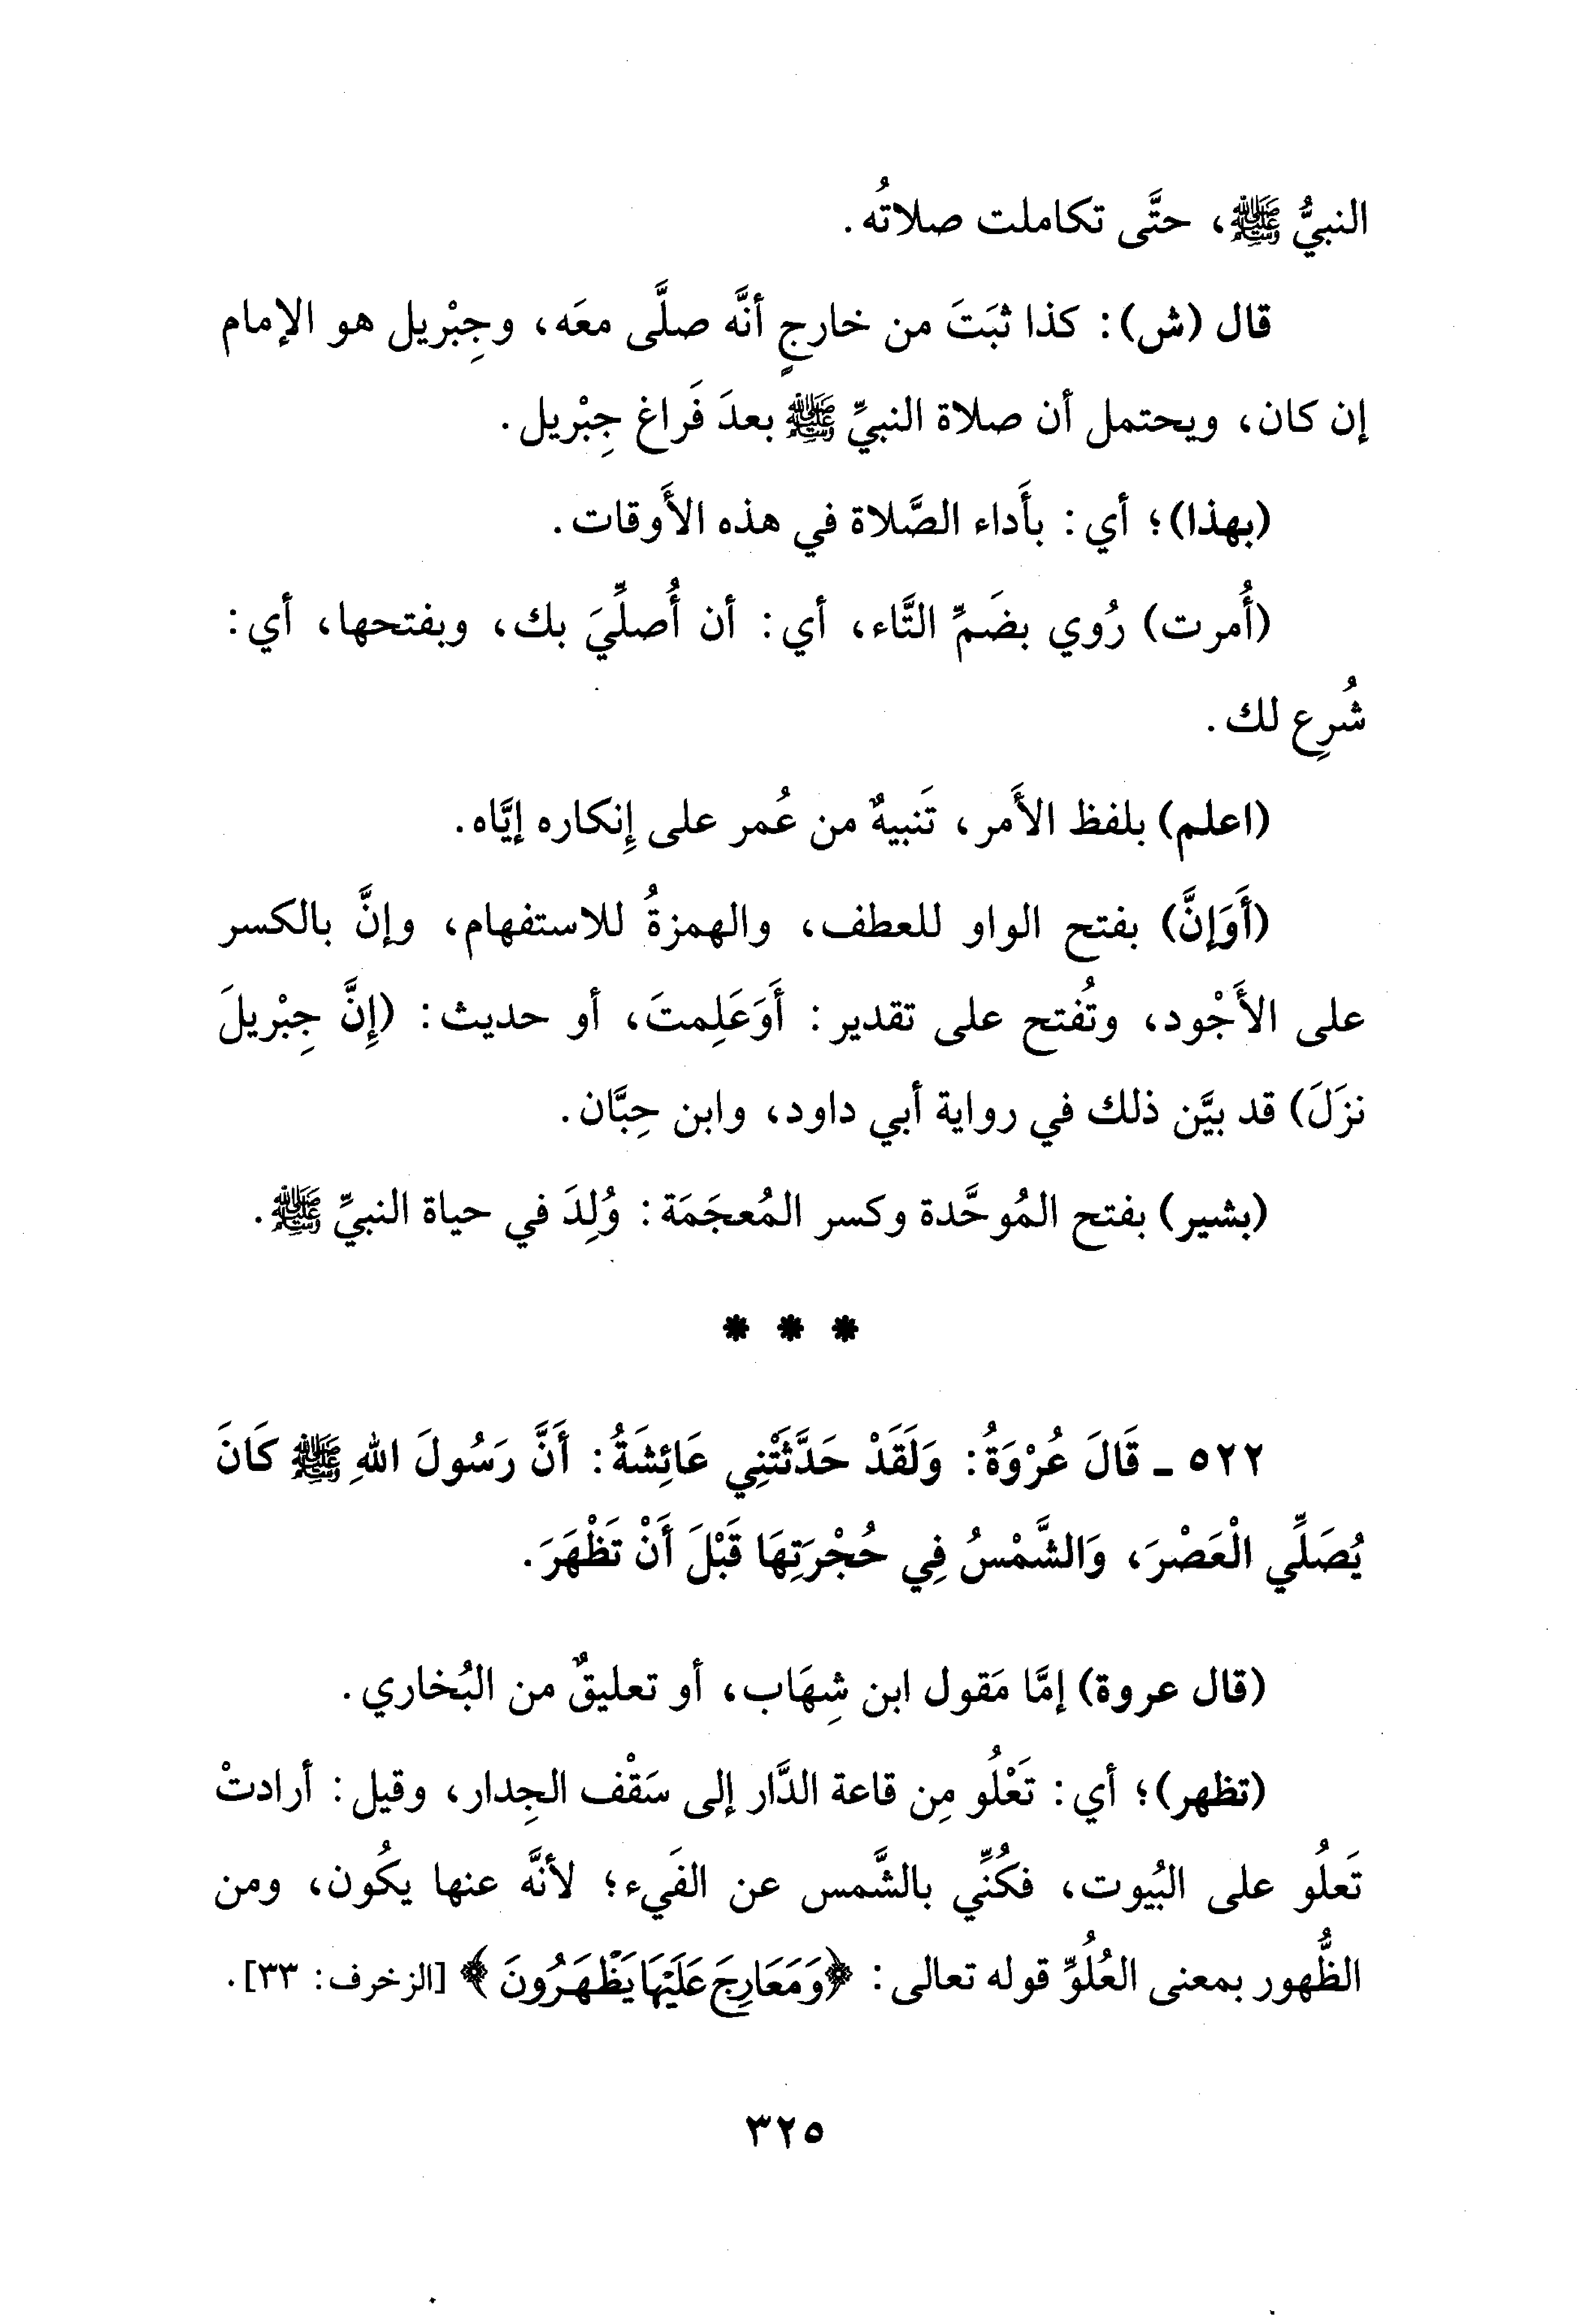 النبيُّ ﷺ، حتَّى تكاملت صلاتُه.
قال (ش): كذا ثبَتَ من خارجٍ أنَّه صلَّى معَه، وجِبْريل هو الإمام
إن كان، ويحتمل أن صلاة النبيِّ ﷺ بعدَ فَراغ جِبْريل.
(بهذا)؛ أي: بأَداء الصَّلاة في هذه الأَوقات.
(أُمرت) رُوي بضَمِّ التَّاء، أي: أن أُصلِّيَ بك، وبفتحها، أي:
شُرِع لك.
(اعلم) بلفظ الأَمر، تَنبيهٌ من عُمر على إِنكاره إيَّاه.
(أَوَإنَّ) بفتح الواو للعطف، والهمزةُ للاستفهام، وإنَّ بالكسر
على الأَجْود، وتُفتح على تقدير: أَوَعَلِمتَ، أو حديث: (إِنَّ جِبْريلَ
نزَلَ) قد بيَّن ذلك في رواية أبي داود، وابن حِبَّان.
(بشير) بفتح المُوحَّدة وكسر المُعجَمَة: وُلِدَ في حياة النبيِّ ﷺ.
* * *
٥٢٢ - قَالَ عُرْوَةُ: وَلَقَدْ حَدَّثَتْنِي عَائِشَةُ: أَنَّ رَسُولَ اللهِ ﷺ كَانَ
يُصَلِّي الْعَصْرَ، وَالشَّمْسُ فِي حُجْرَتِهَا قَبْلَ أَنْ تَظْهَرَ.
(قال عروة) إمَّا مَقول ابن شِهَاب، أو تعليقٌ من البُخاري.
(تظهر)؛ أي: تَعْلُو مِن قاعة الدَّار إلى سَقْف الجِدار، وقيل: أرادتْ
تَعلُو على البُيوت، فكُنِّي بالشَّمس عن الفَيء؛ لأنَّه عنها يكُون، ومن
الظُّهور بمعنى العُلُوِّ قوله تعالى: ﴿وَمَعَارِجَ عَلَيْهَا يَظْهَرُونَ﴾ [الزخرف: ٣٣].
٣٢٥